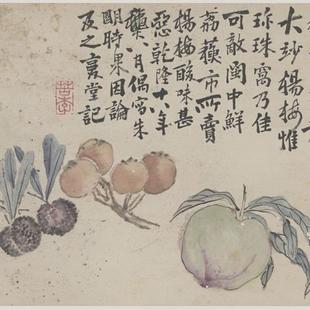 大妙楊梅惟
珍珠窩乃佳
可敵閩中鮮
荔 市所賣
楊梅酸味甚
惡乾隆十八年
八月偶寫朱
明時果因論
及之复堂記